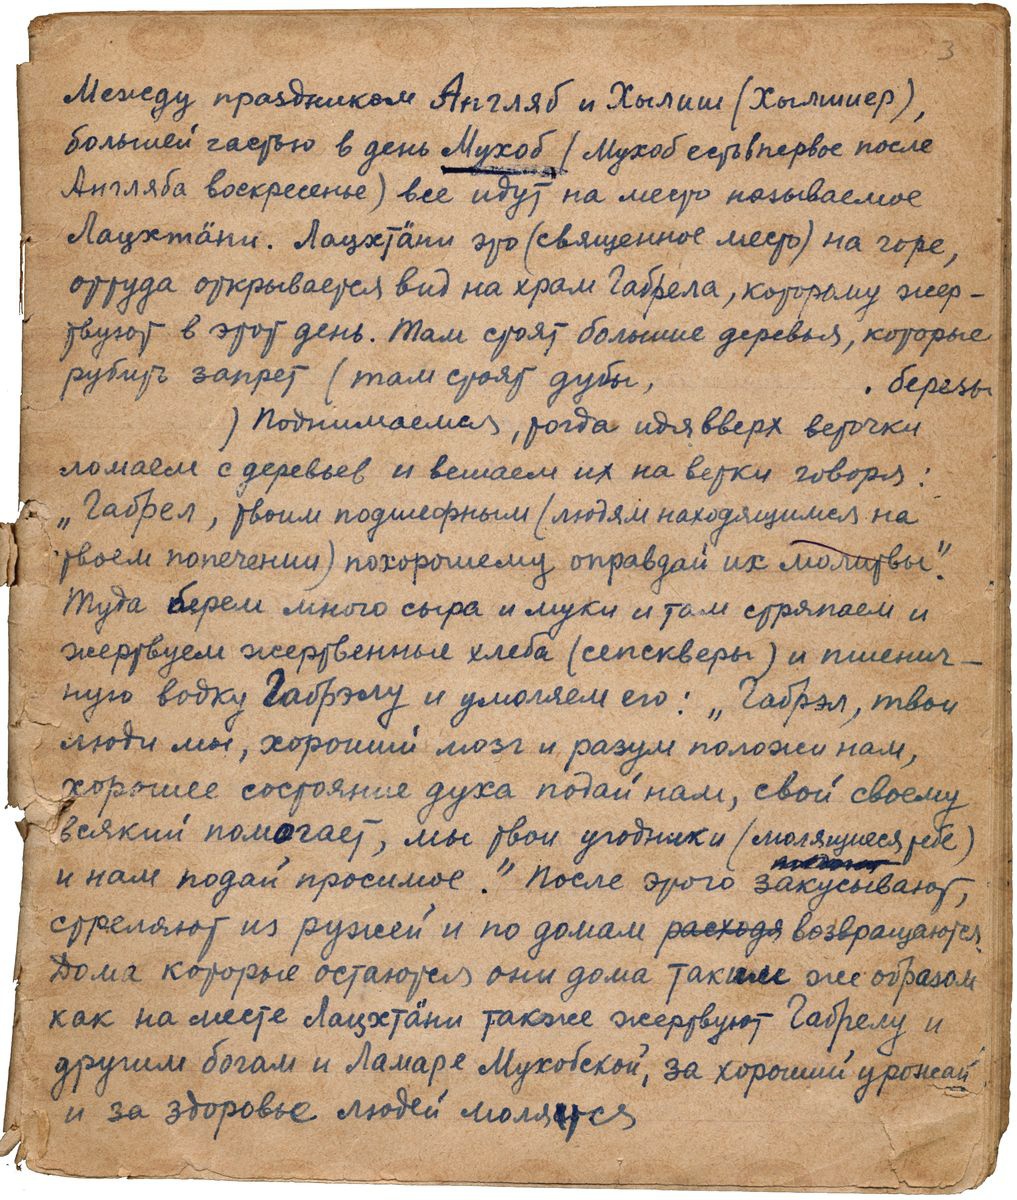 3
Между праздником Англяб и Хылиш (Хылшиер),
большей частью в день Мухоб (Мухоб есть впервое после
Англяба воскресенье) все идут на место называемое
Лацхтӓни. Лацхтӓни это (священное место) на горе,
оттуда открывается вид на храм Габрела, которому жер-
твуют в этот день. Там стоят большие деревья, которые
рубить запрет (там стоят дубы, . березы
) Поднимаемся, тогда идя вверх веточки
ломаем с деревьев и вешаем их на ветки говоря:
„Габрел, твоим подшефным (людям находящимся на
твоем попечении) похорошему оправдай их молитвы".
Туда берем много сыра и муки и там стряпаем и
жертвуем жертвенные хлеба (сепскверы) и пшенич-
ную водку Габрэлу и умоляем его: „Габрэл, твои
люди мы, хороший мозг и разум положи нам,
хорошее состояние духа подай нам, свой своему
всякий помогает, мы твои угодники (молящиеся тебе)
и нам подай просимое." После этого закусывают,
стреляют из ружей и по домам расходя возвращаются.
Дома которые остаются они дома таким же образом
как на месте Лацхтӓни также жертвуют Габрелу и
другим богам и Ламаре Мухобской, за хороший урожай
и за здоровье людей молятся